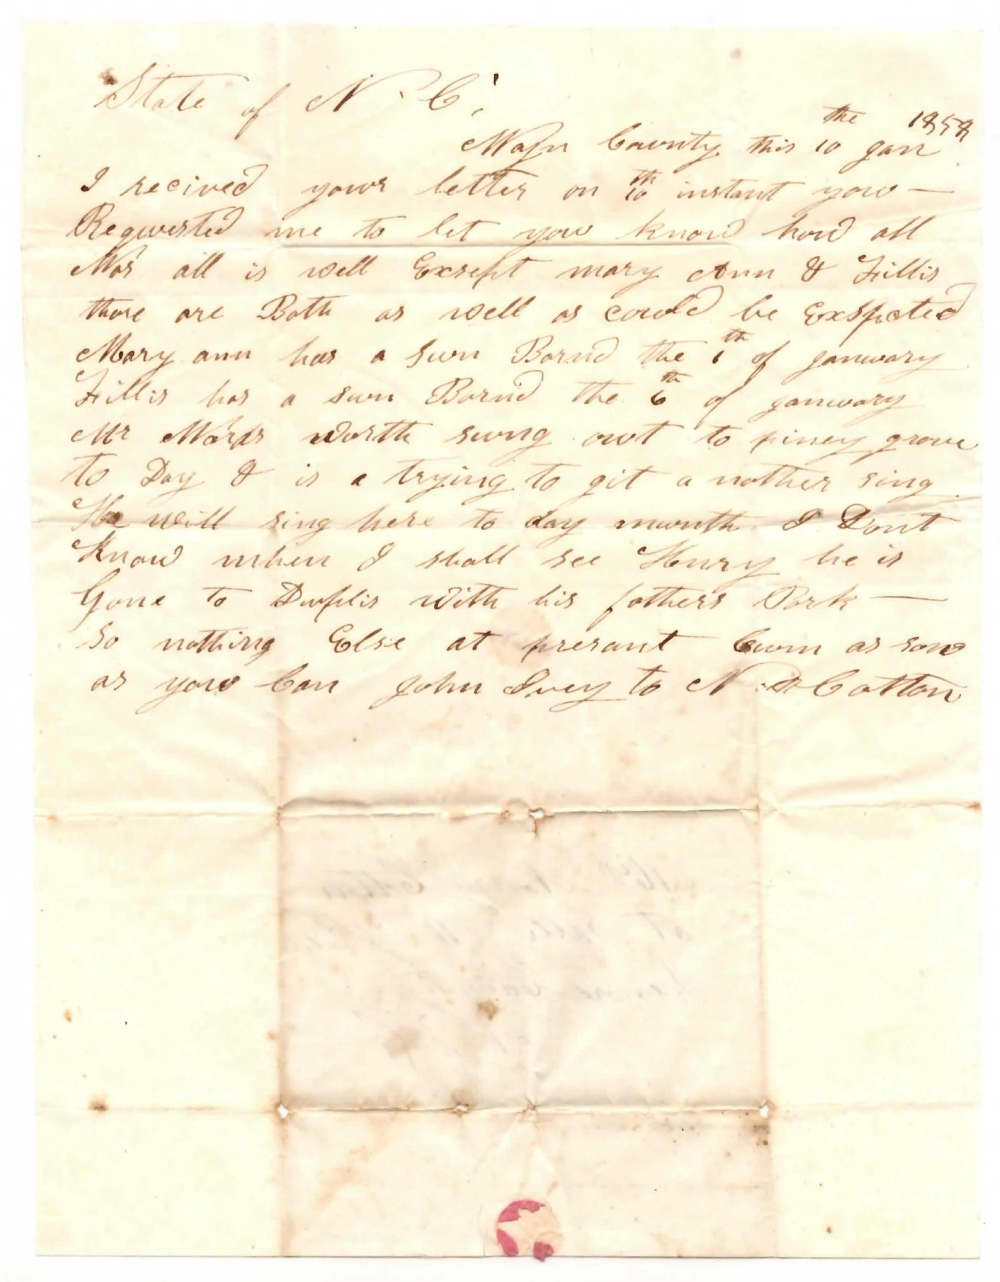 State of N. C.
Wayn County this 10 the Jan 1858
I recived your letter on 10 th instant you —
Requested me to let you know how all
Was all is well Exsept mary Ann & Fillis
thare are Both as well as could be Exspected
Mary ann has a sun Bornd the 1 th of januuary
Fillis has a sun Bornd the 6 th of januuary
Mr worth sung out to piney grove
to Day & is a trying to git a nother sing
He will sing here to day munth I Dont
Know when I shall see Henry he is
Gone to Duplis with his fathers Pork —
So nothing Else at presant Cum as son
as you Can John Ivey to N. D Cotton